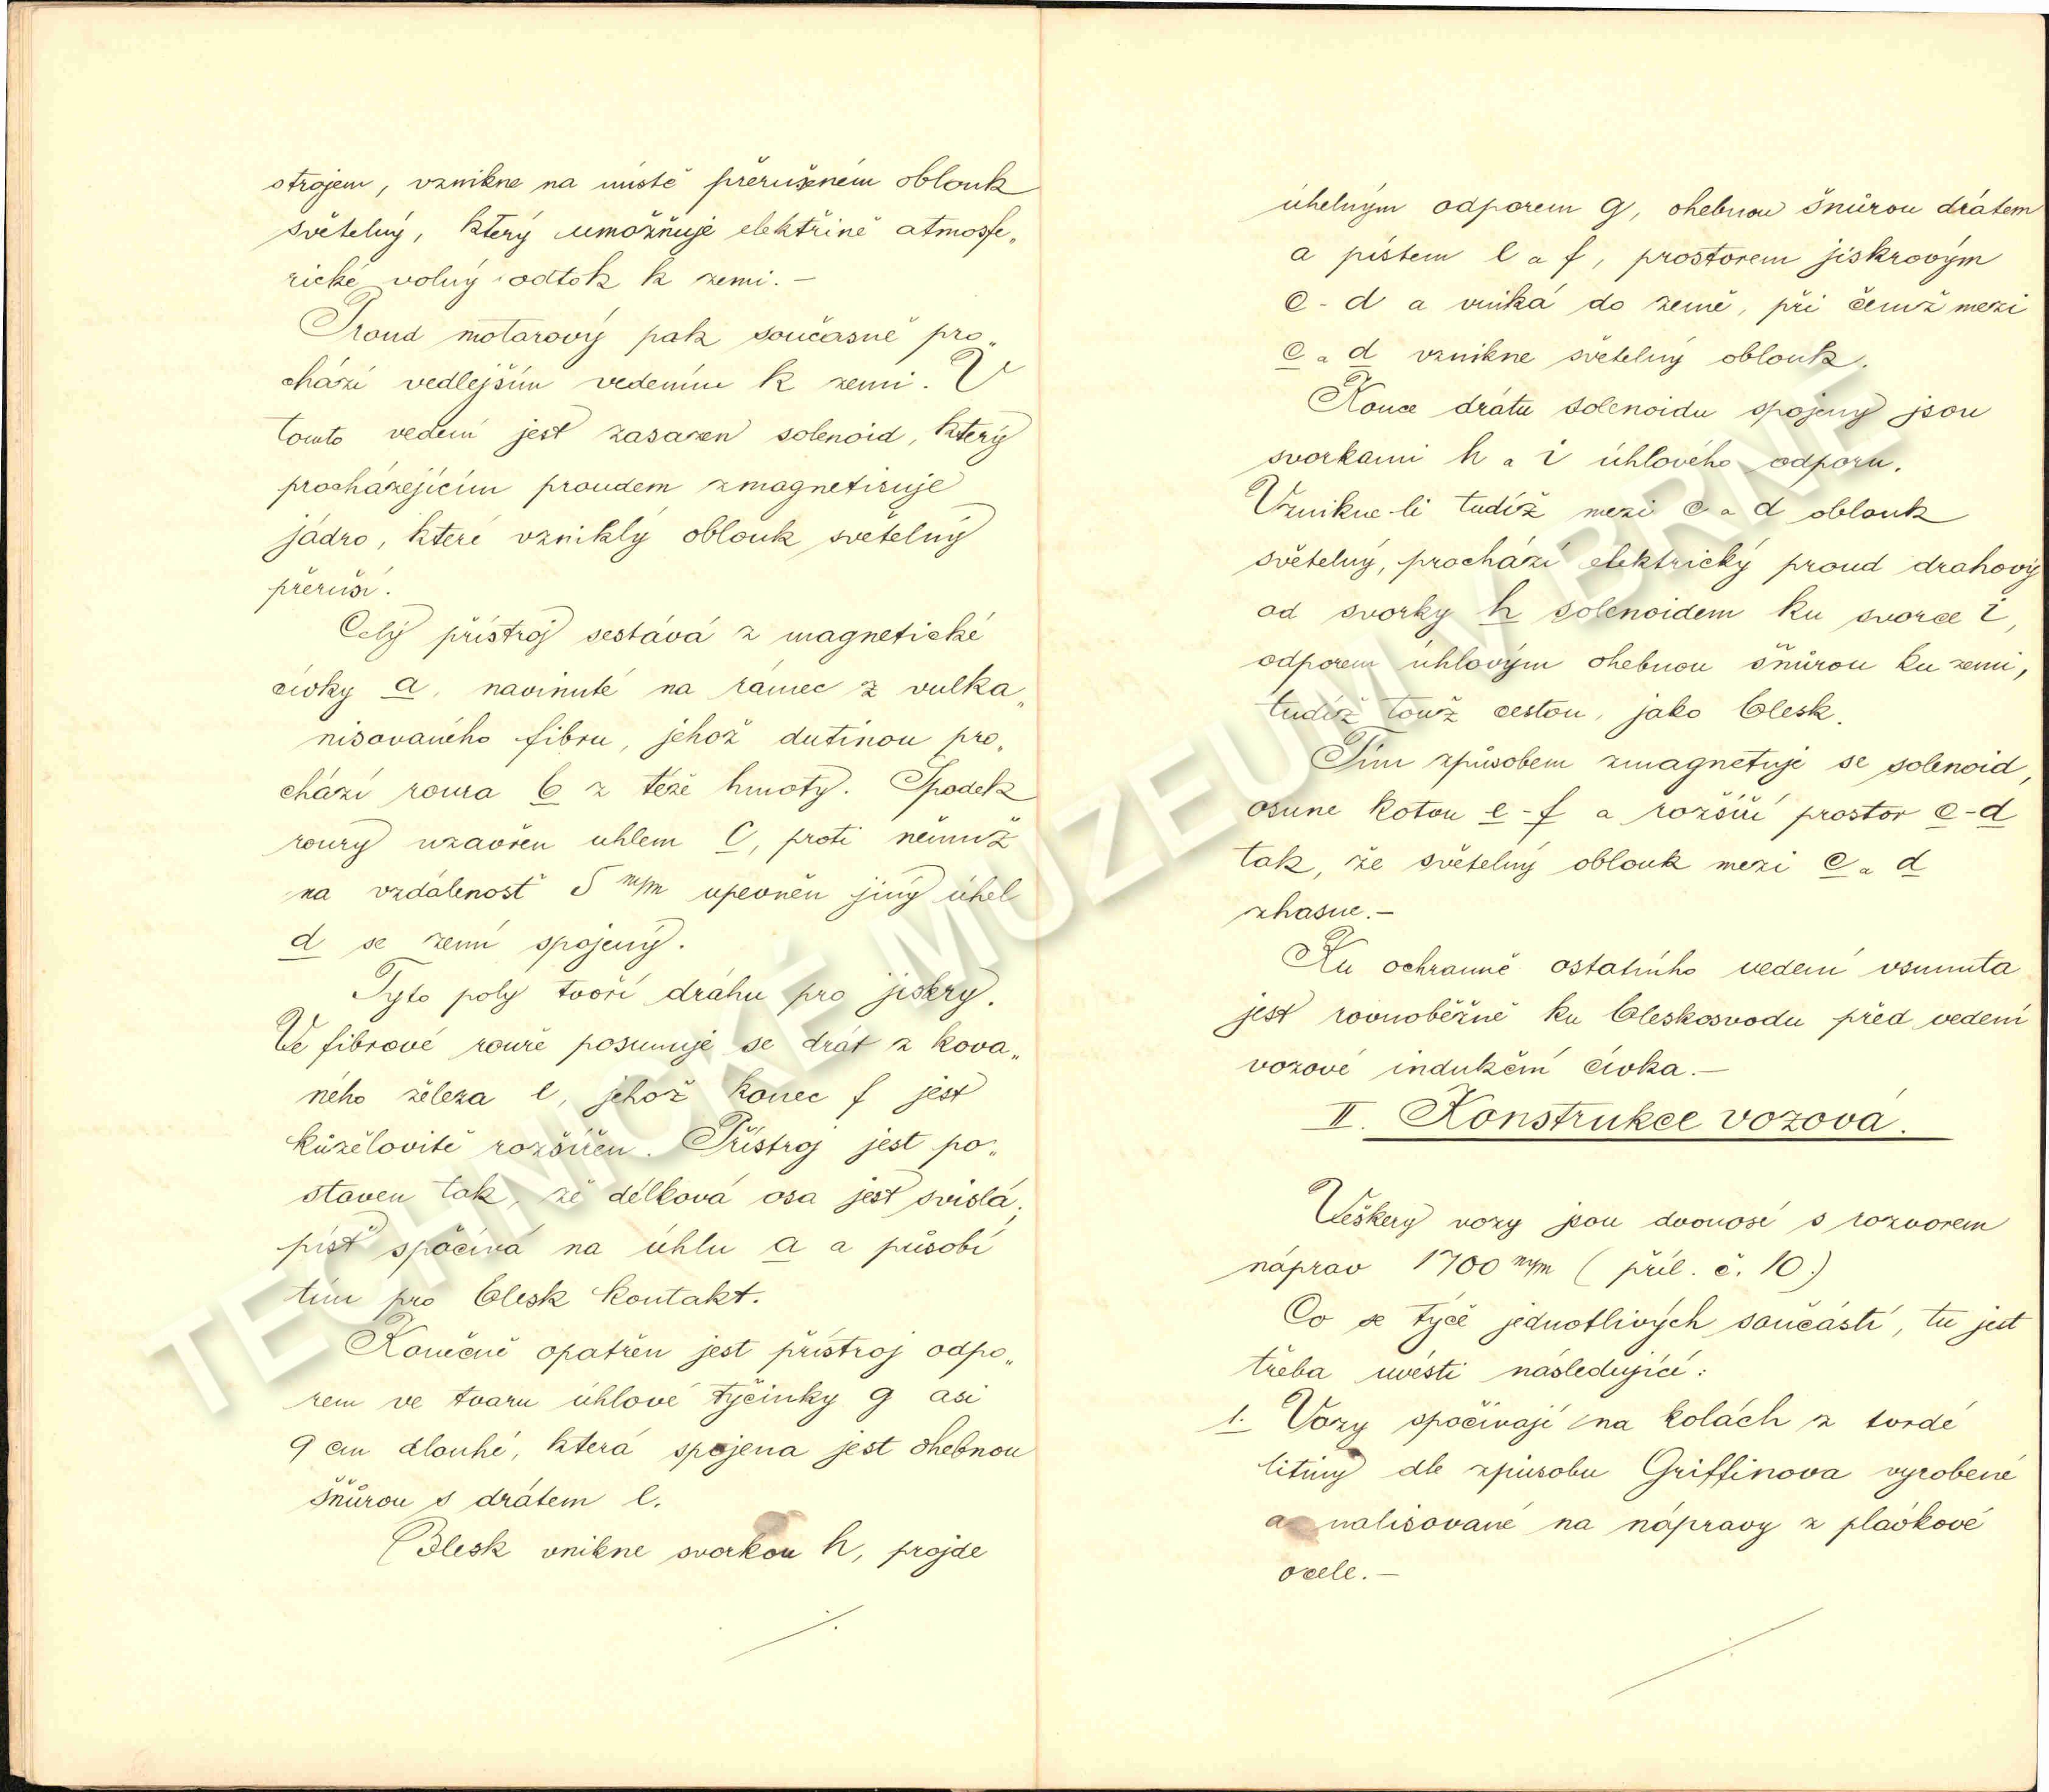 strojem, vznikne na místě přerušeném oblouk
světelný, který umožňuje elektřině atmosfe„
rické volný odtok k zemi. –
Proud motorový pak současně pro„
chází vedlejším vedením k zemi. V
tomto vedení jest zasazen solenoid, který
procházejícím proudem zmagnetisuje
jádro, které vzniklý oblouk světelný
přeruší.
Celý přístroj sestává z magnetické
cívky a, navinuté na rámec z vulka„
nisovaného fibru, jehož dutinou pro„
chází roura b z téže hmoty. Spodek
roury uzavřen uhlem c, proti němuž
na vzdálenosť 5 m/m upevněn jiný úhel
d se zemí spojený.
Tyto poly tvoří dráhu pro jiskry.
Ve fibrové rouře posunuje se drát z kova„
ného železa e, jehož konec f jest
kůželovitě rozšířen. Přístroj jest po„
staven tak, že délková osa jest svislá;
písť spočívá na úhlu a a působí
tím pro blesk kontakt.
Konečně opatřen jest přístroj odpo„
rem ve tvaru úhlové tyčinky g asi
9 cm dlouhé, která spojena jest ohebnou
šňůrou s drátem e.
Blesk vnikne svorkou h, projde
úhelným odporem g, ohebnou šnůrou drátem
a pístem e a f, prostorem jiskrovým
c - d a vniká do země, při čemž mezi
c a d vznikne světelný oblouk.
Konce drátu solenoidu spojeny jsou
svorkami h a i úhlového odporu.
Vznikne-li tudíž mezi c a d oblouk
světelný, prochází elektrický proud drahový
od svorky h solenoidem ku svorce i,
odporem úhlovým ohebnou šňůrou ku zemi,
tudíž touž cestou, jako blesk.
Tím způsobem zmagnetuje se solenoid,
osune kotou e - f a rozšíří prostor c - d
tak, že světelný oblouk mezi c a d
zhasne. –
Ku ochranně ostatního vedení vsunuta
jest rovnoběžně ku bleskosvodu před vedení
vozové indukční cívka. –
II. Konstrukce vozová.
Veškery vozy jsou dvouosé s rozvorem
náprav 1700 m/m ( příl. č. 10.)
Co se týče jednotlivých součástí, tu jest
třeba uvésti následující:
1. Vozy spočívají na kolách z tvrdé
litiny dle způsobu Griffinova vyrobené
a nalisované na nápravy z plávkové
ocele. –
TECHNICKÉ MUZEUM V BRNĚ